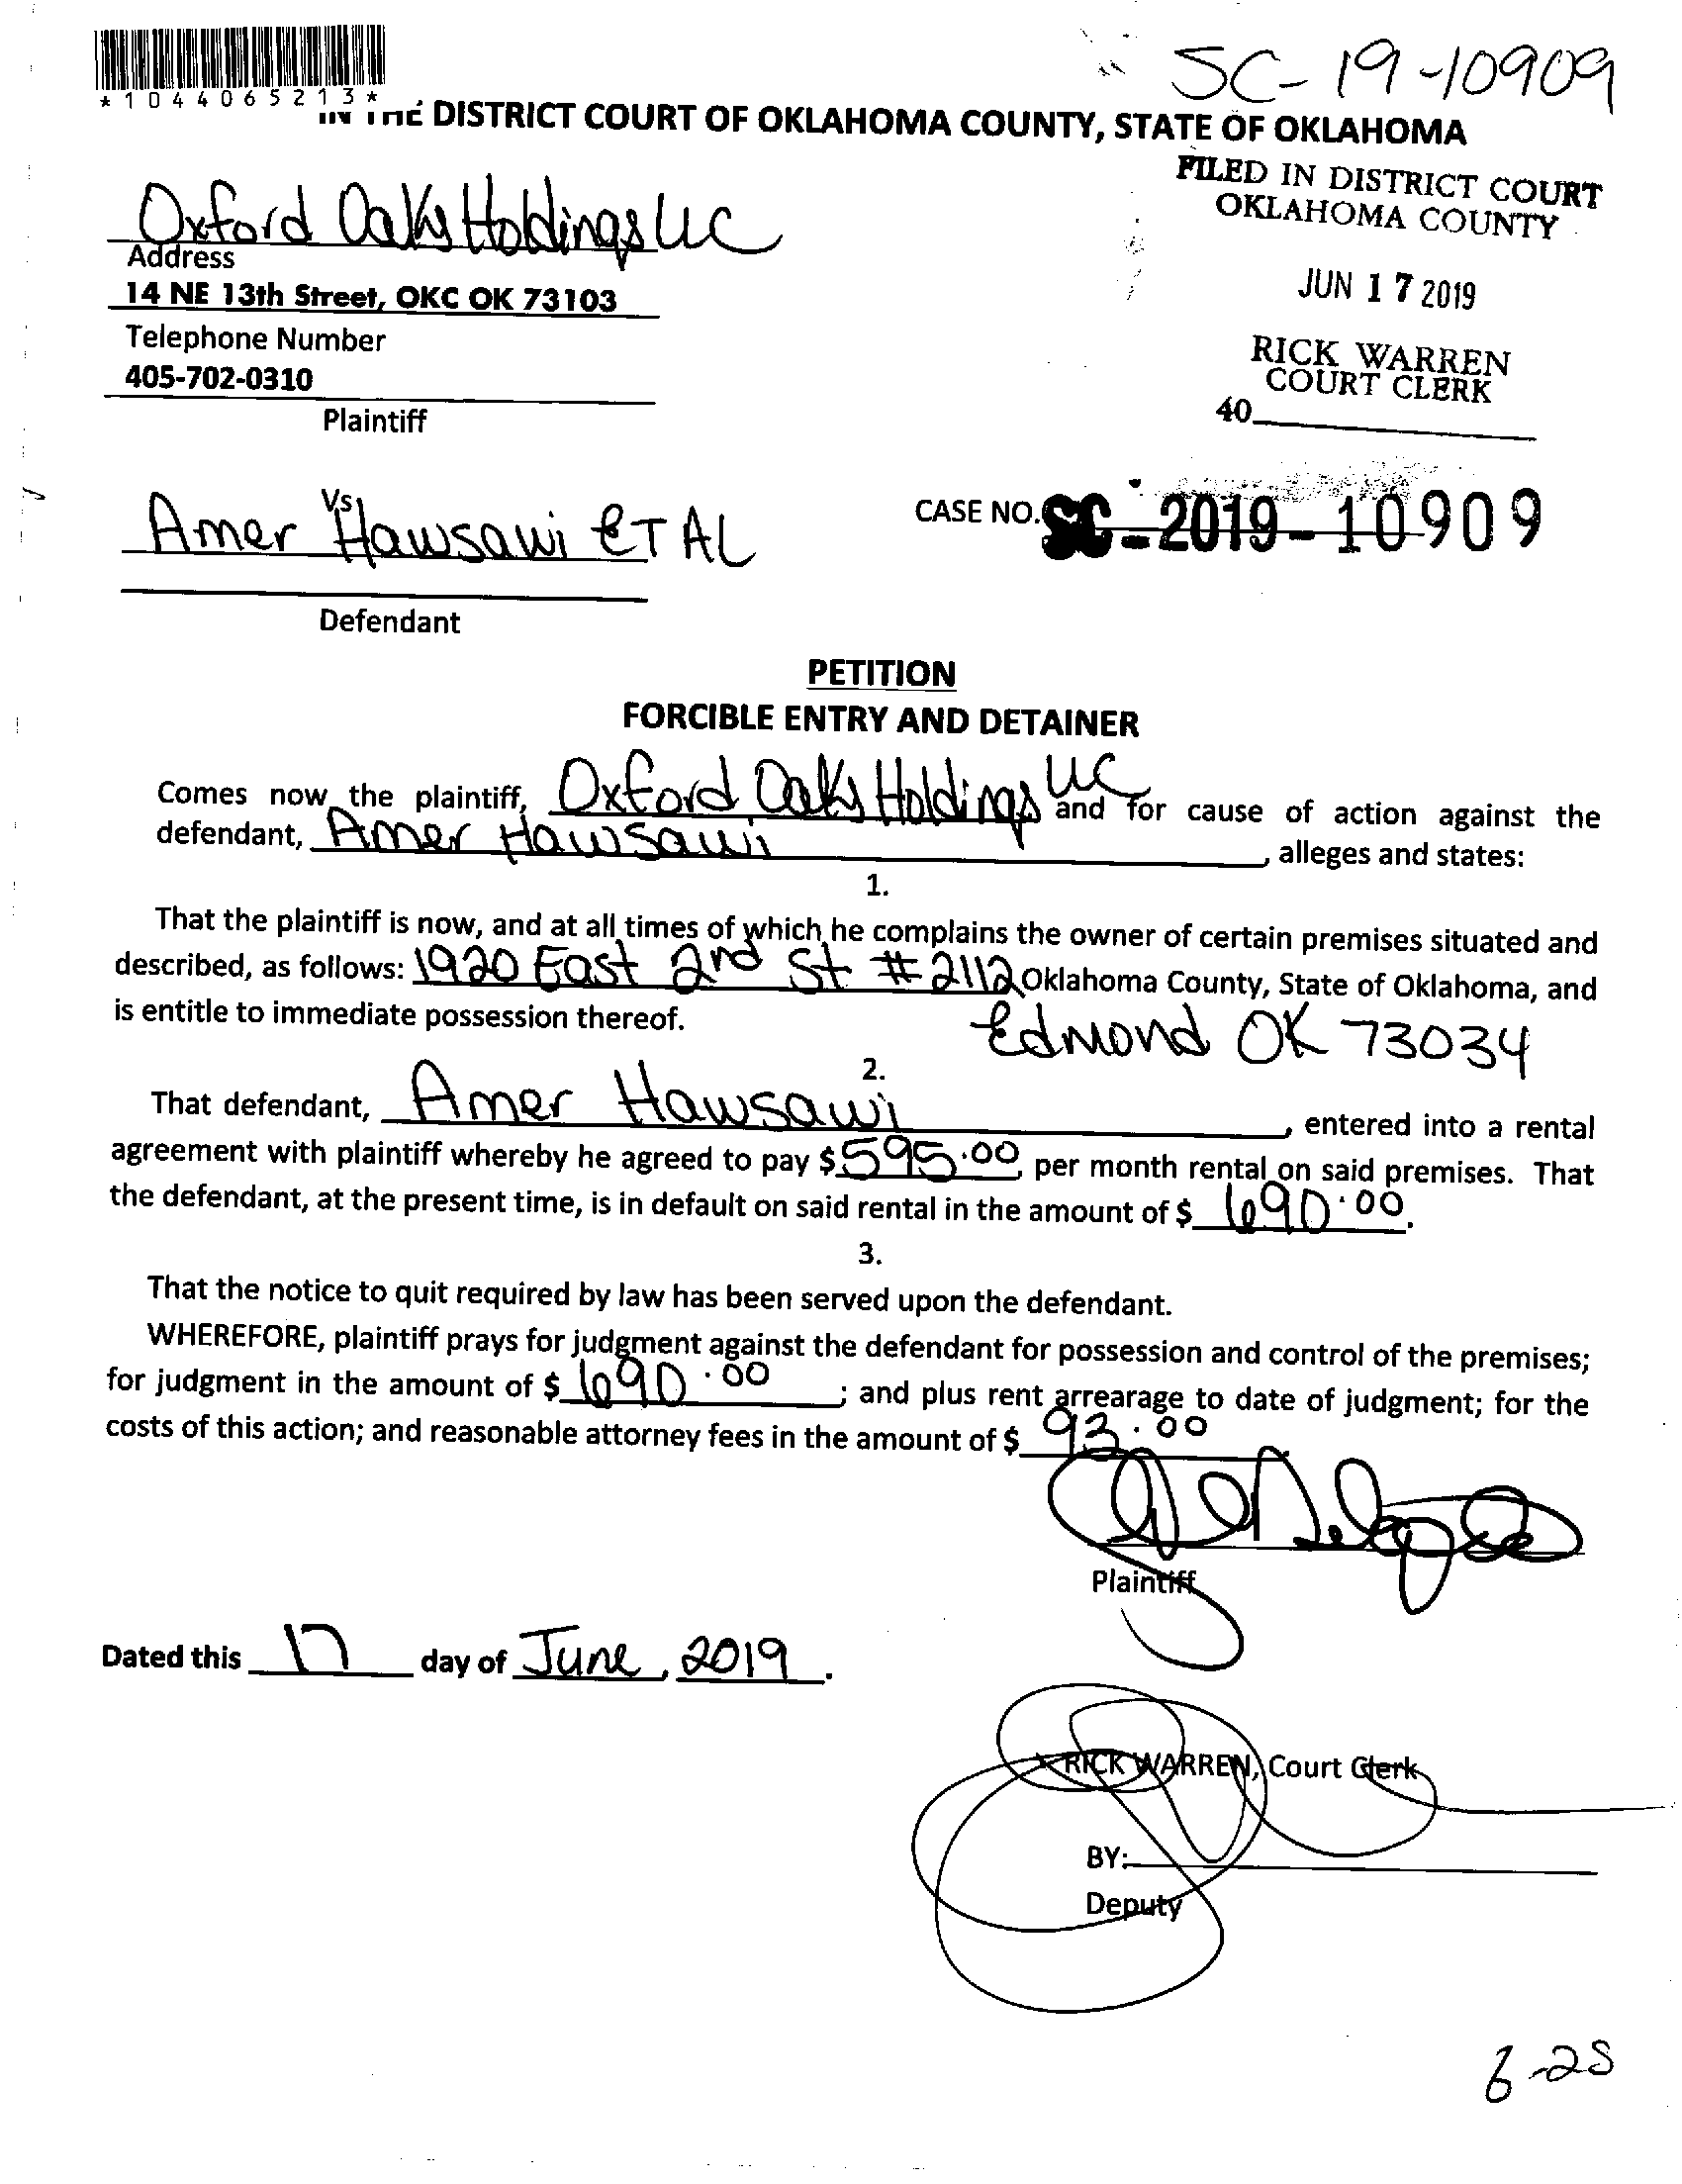 SC-19-10909
*1044065213*
IN THE DISTRICT COURT OF OKLAHOMA COUNTY, STATE OF OKLAHOMA
FILED IN DISTRICT COURT
OKLAHOMA COUNTY
JUN 17 2019
RICK WARREN
COURT CLERK
40
Oxford Oaks Holdings LLC
Address
14 NE 13th Street, OKC OK 73103
Telephone Number
405-702-0310
Plaintiff
Vs
Amer Hawsawi ET AL
Defendant
CASE NO. SC-2019-10909
PETITION
FORCIBLE ENTRY AND DETAINER
Comes now the plaintiff, Oxford Oaks Holdings LLC and for cause of action against the
defendant, Amer Hawsawi, alleges and states:
1.
That the plaintiff is now, and at all times of which he complains the owner of certain premises situated and
described, as follows: 1920 East 2nd St #2112 Oklahoma County, State of Oklahoma, and
is entitle to immediate possession thereof. Edmond OK 73034
2.
That defendant, Amer Hawsawi, entered into a rental
agreement with plaintiff whereby he agreed to pay $595.00, per month rental on said premises. That
the defendant, at the present time, is in default on said rental in the amount of $ 690.00.
3.
That the notice to quit required by law has been served upon the defendant.
WHEREFORE, plaintiff prays for judgment against the defendant for possession and control of the premises;
for judgment in the amount of $ 690.00; and plus rent arrearage to date of judgment; for the
costs of this action; and reasonable attorney fees in the amount of $ 93.00
Plaintiff
Dated this 17 day of June, 2019.
RICK WARREN, Court Clerk
BY:
Deputy